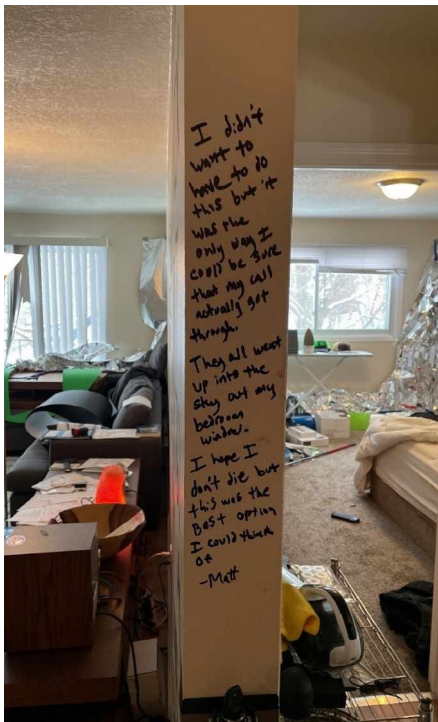 I didn't
want to
have to do
this but it
was the
only way I
could be sure
that my call
actually got
through.
They all went
up into the
sky out my
bedroom
window.
I hope I
don't die but
this was the
Best option
I could think
of
-Matt